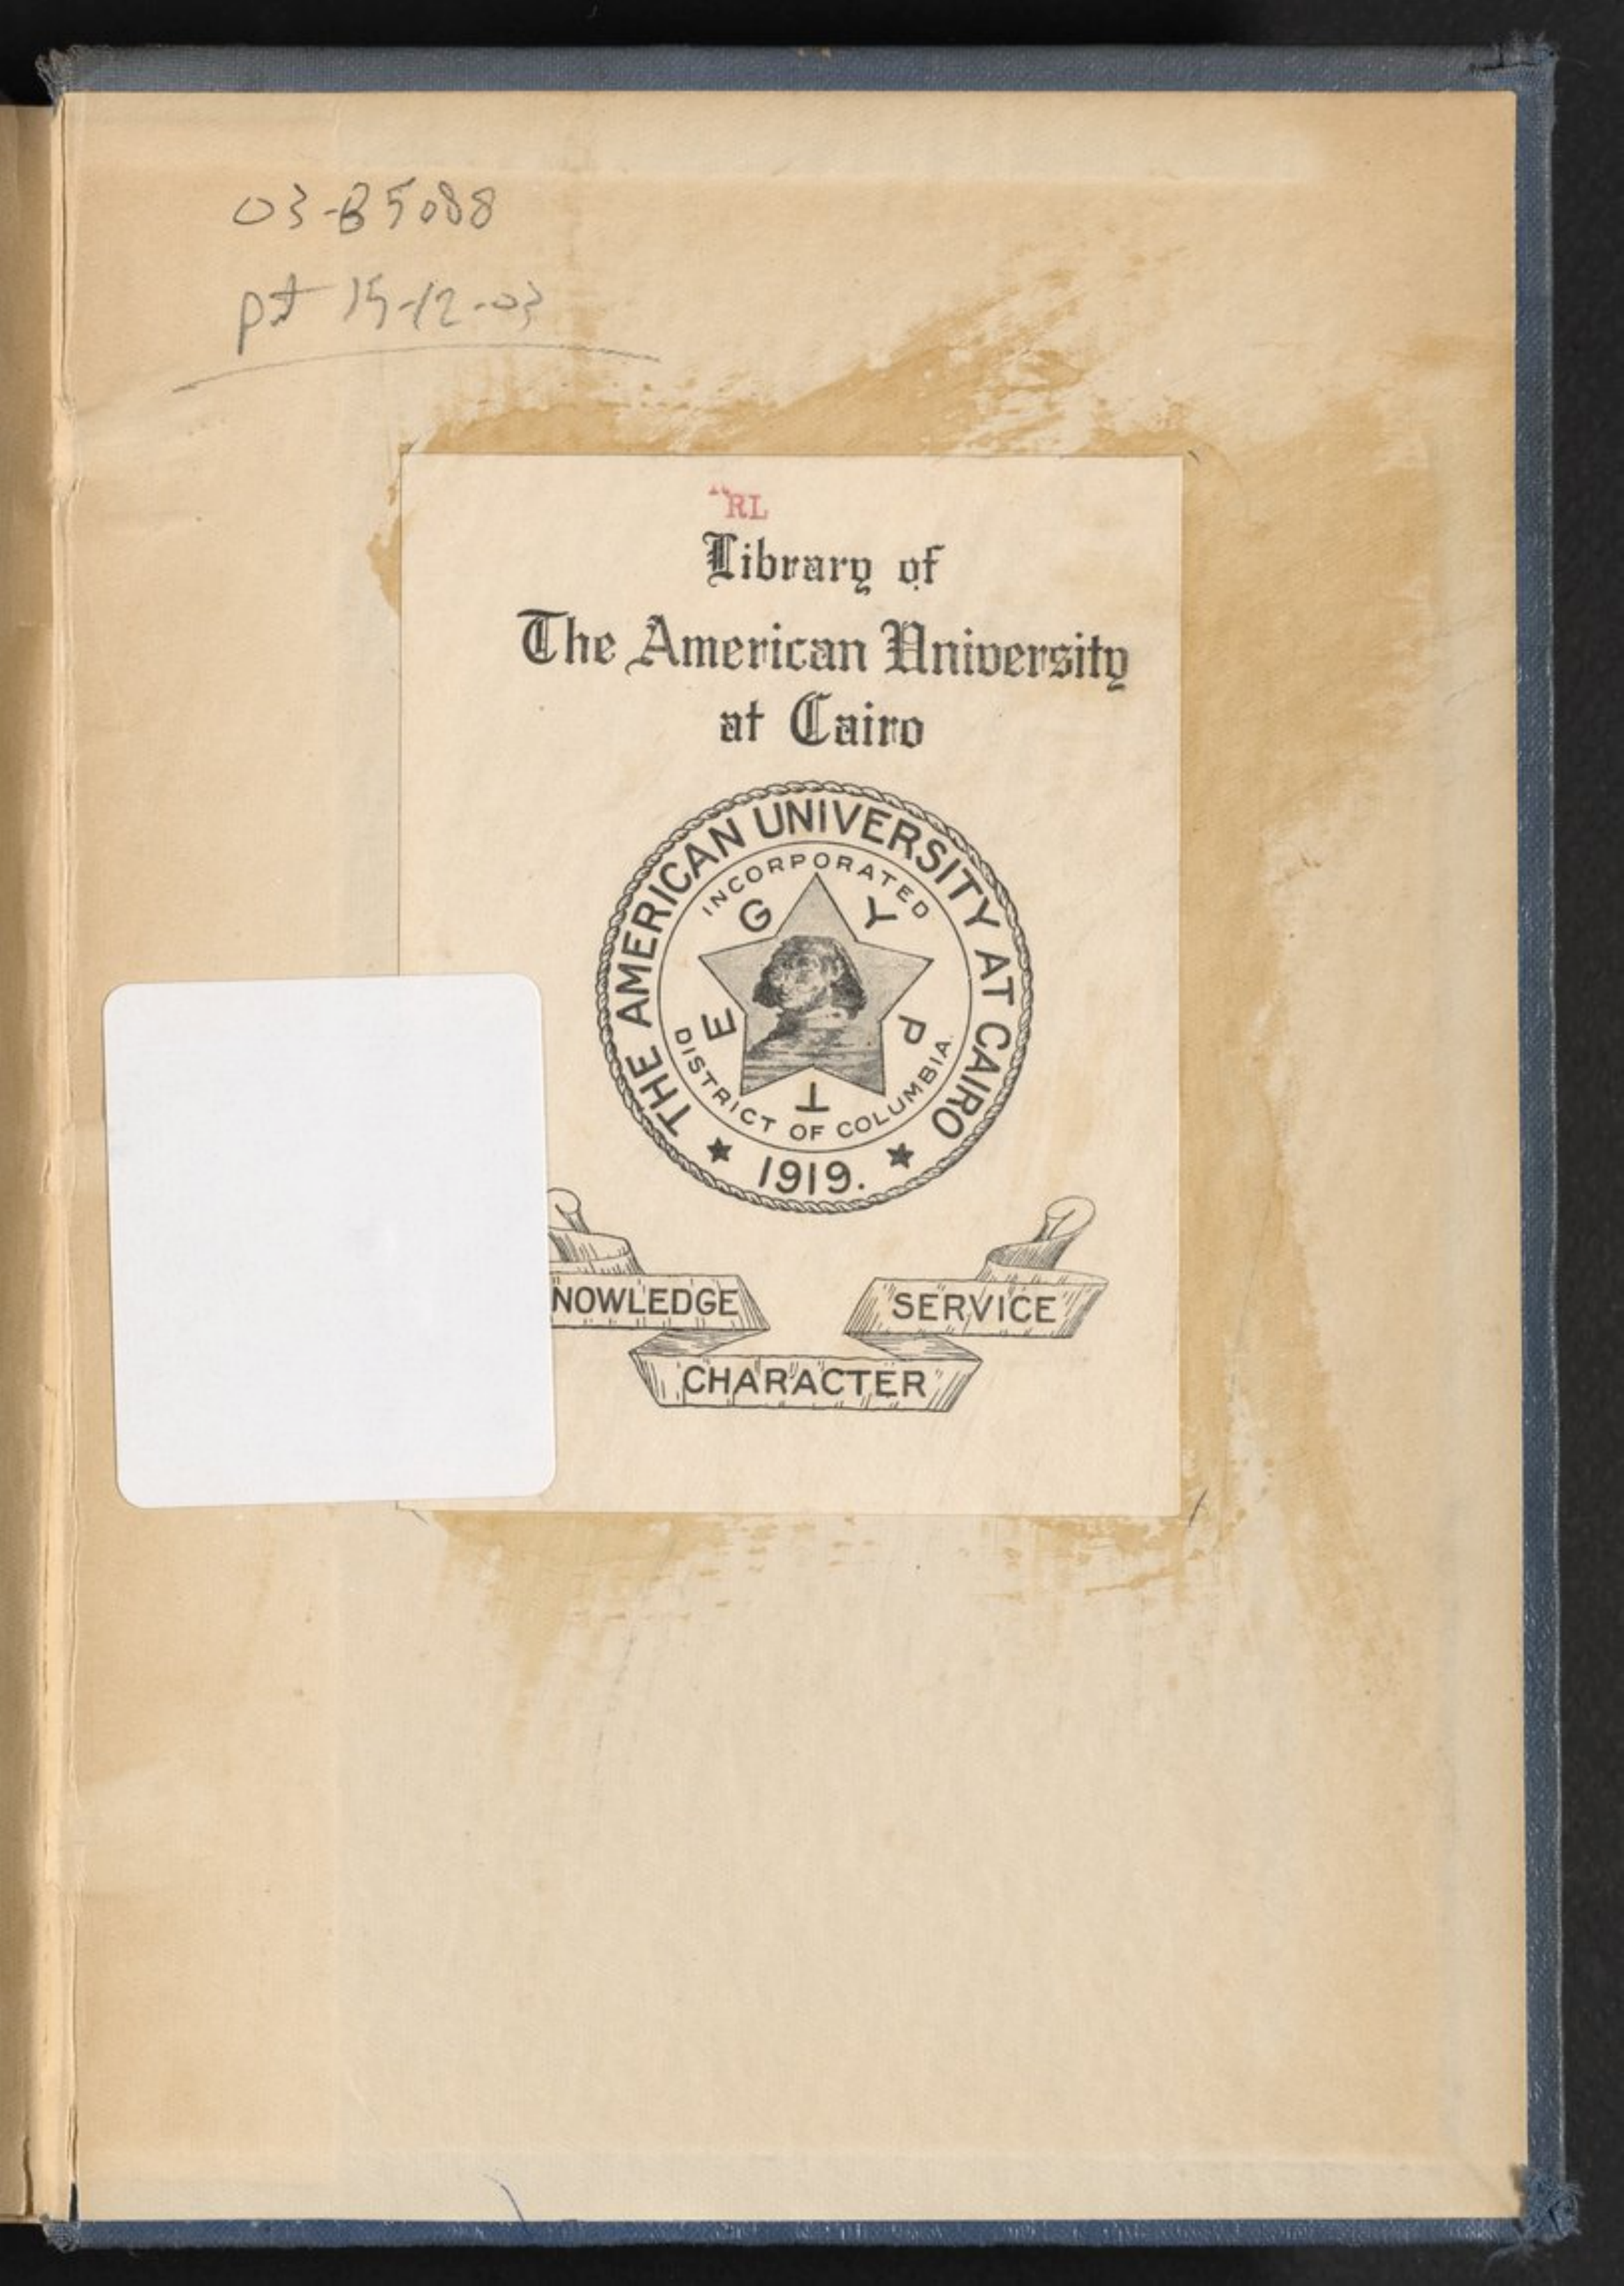 03-B5088
pt 15-12-03
RL
Library of
The American University
at Cairo
THE AMERICAN UNIVERSITY AT CAIRO
INCORPORATED
EGYPT
DISTRICT OF COLUMBIA.
1919.
NOWLEDGE
SERVICE
CHARACTER